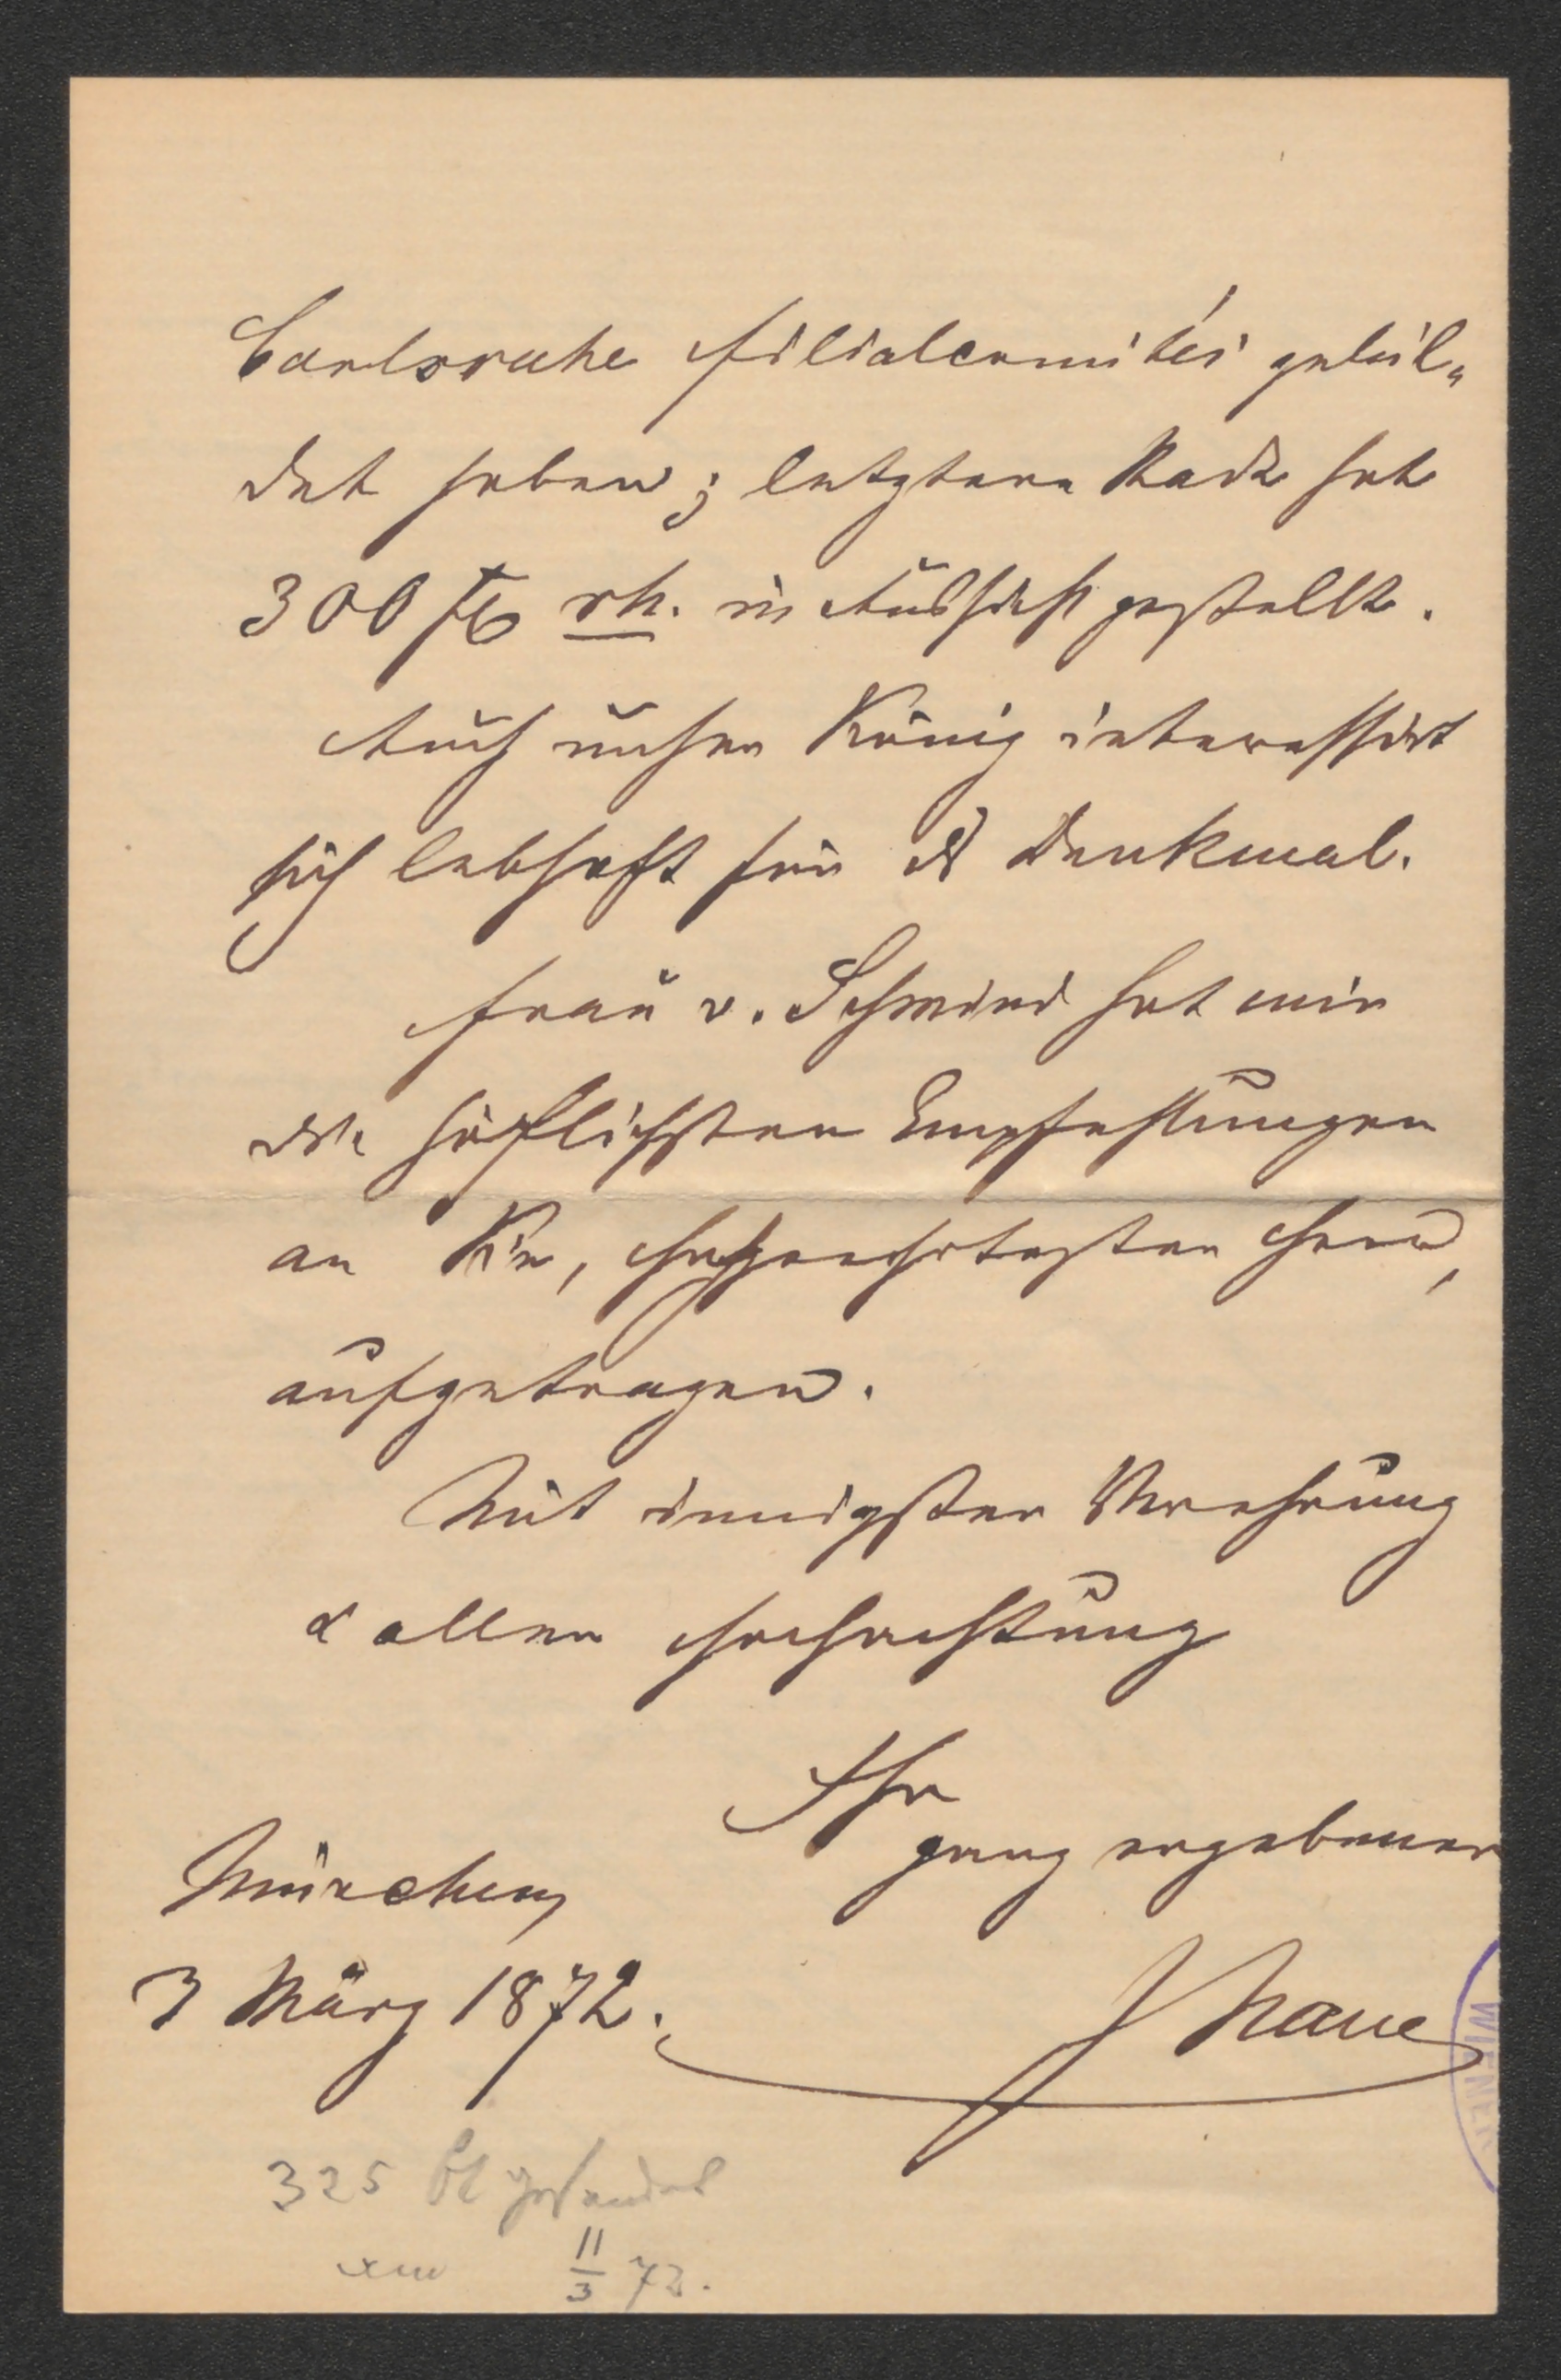 Carlsruhe Filialcomités gebil-
det haben; letztere Stadt hat
300 fl rh. in Aussicht gestellt.
Auch unser König interessirt
sich lebhaft für das Denkmal.
Frau v. Schwind hat mir
die höflichsten Empfehlungen
an Sie, hochgeehrtester Herr,
aufgetragen.
Mit innigster Verehrung
& aller Hochachtung
Ihr
ganz ergebener
München,
3 März 1872.
J Naue
WIENER
325 fl gesendet
am 11/3 72.